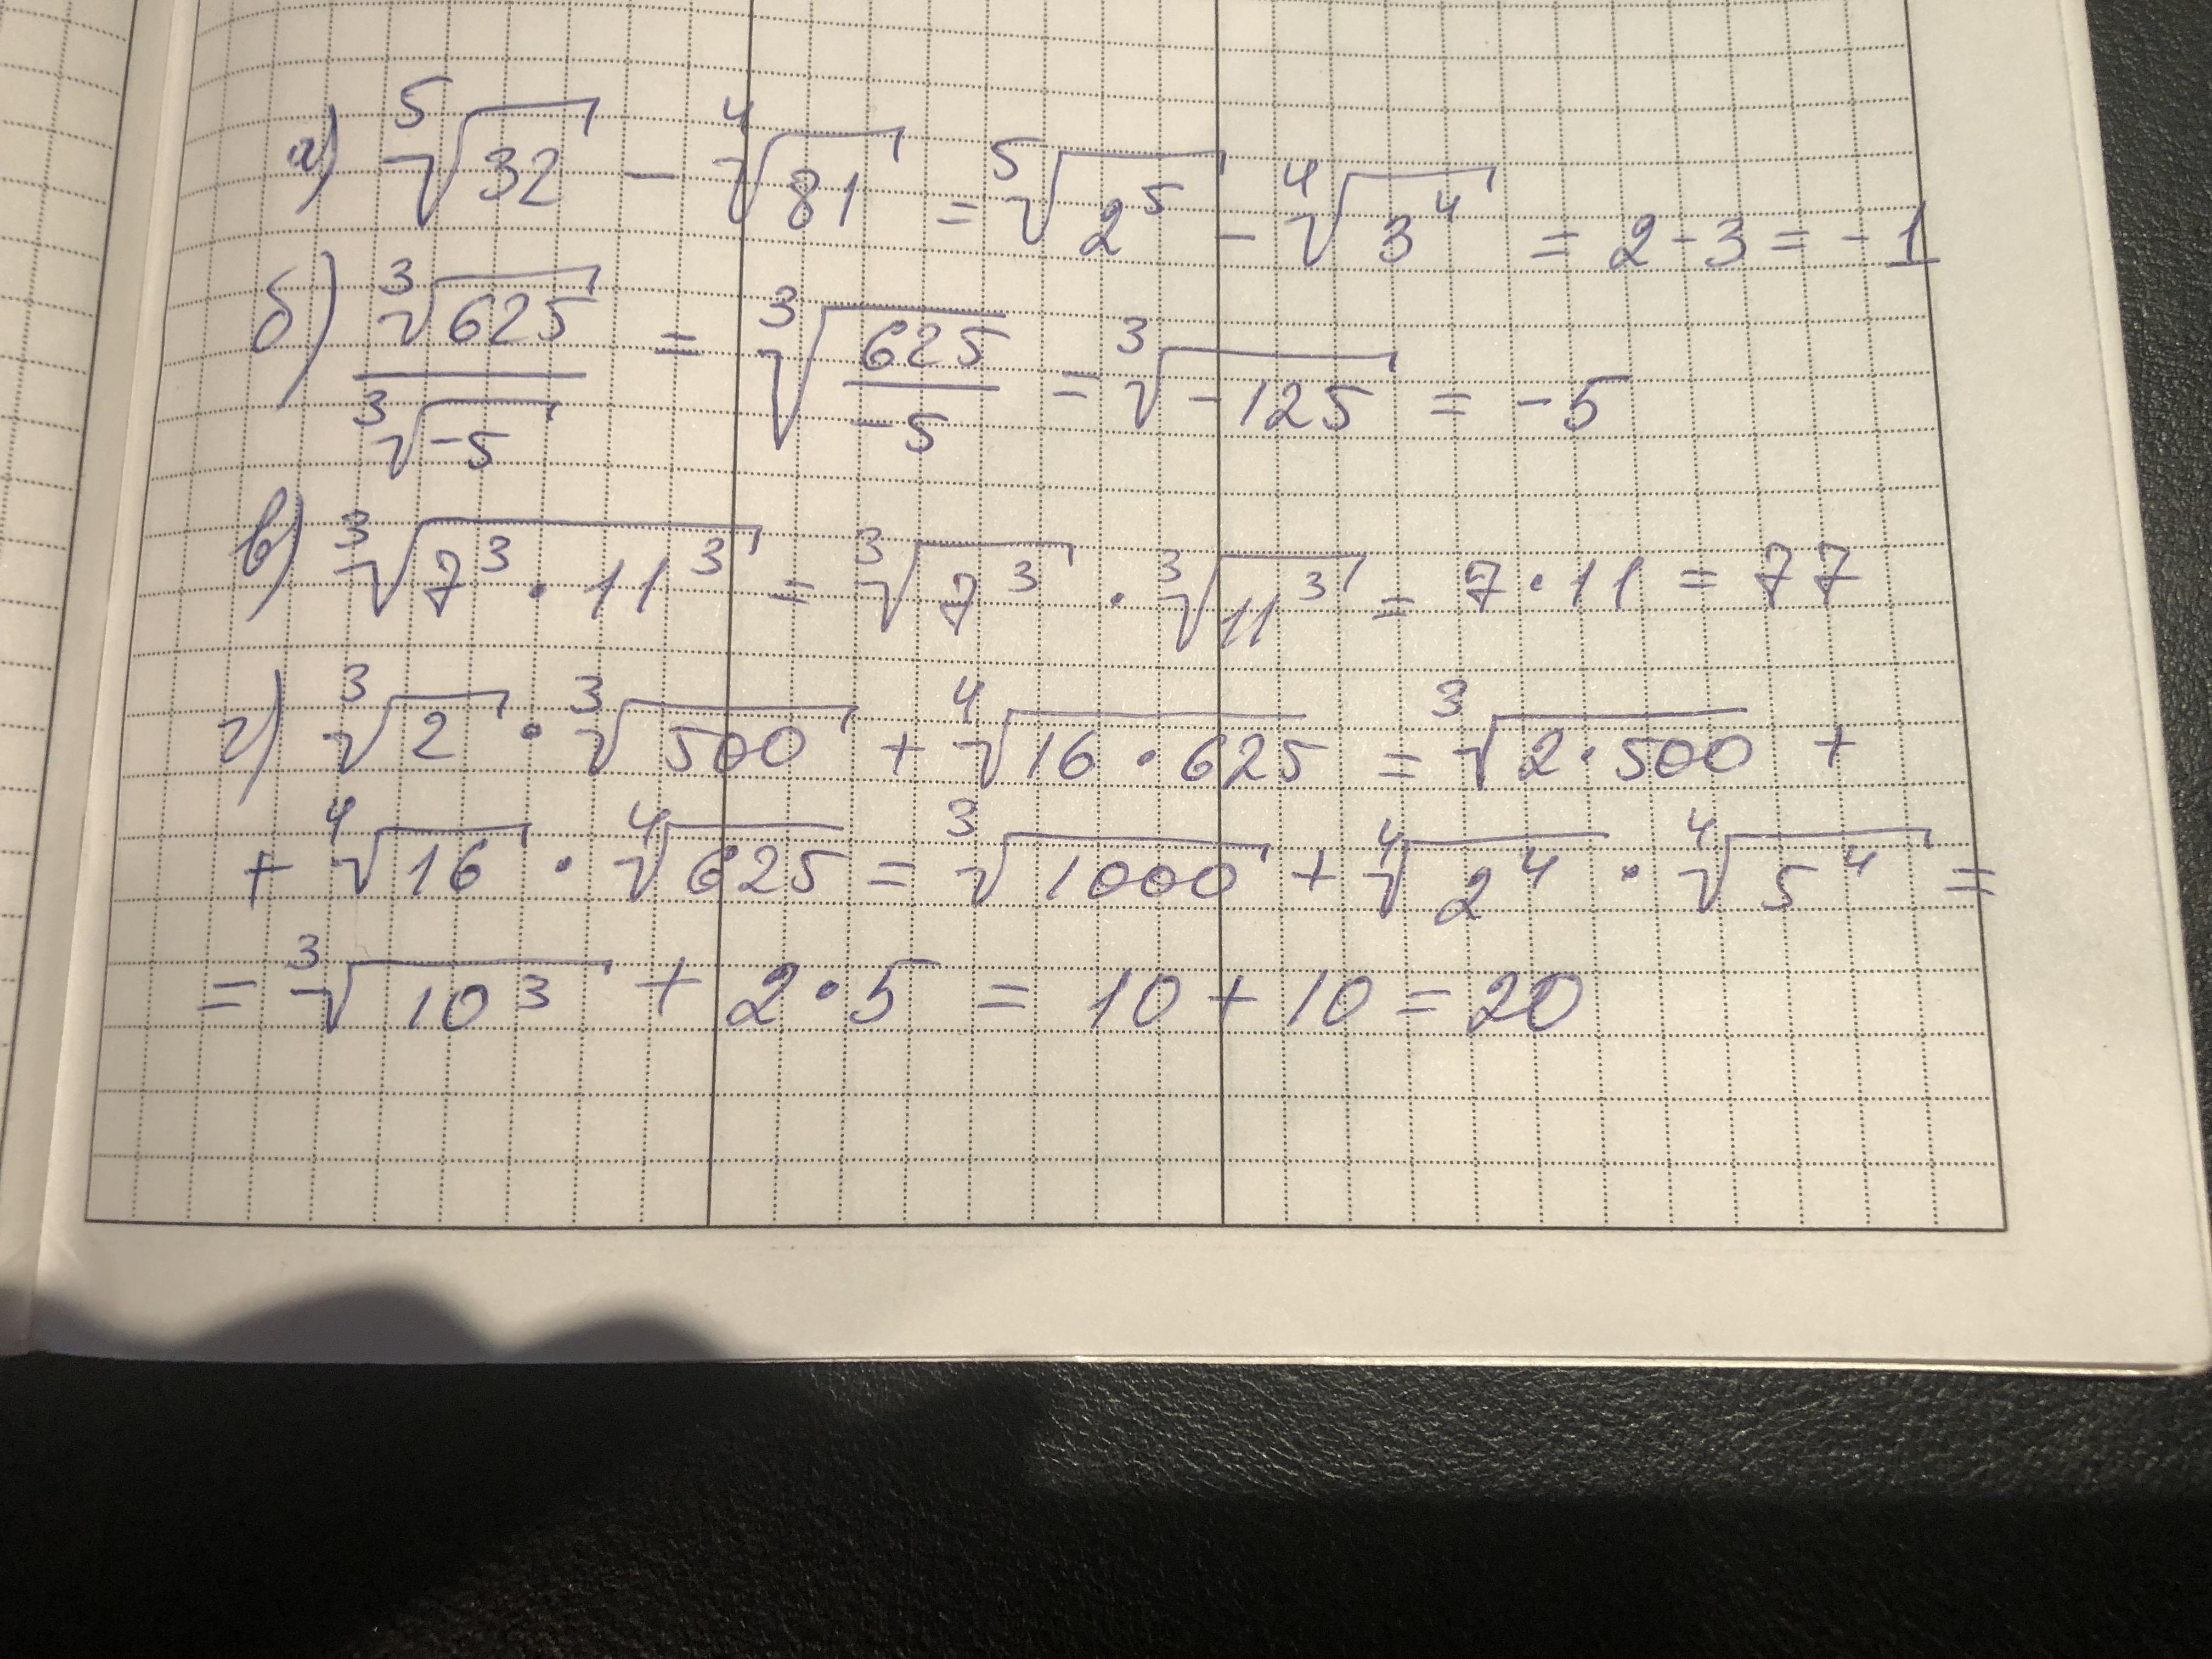 а) ⁵√32 - ⁴√81 = ⁵√2⁵ - ⁴√3⁴ = 2 - 3 = -1
б) ³√625 / ³√-5 = ³√(625 / -5) = ³√-125 = -5
в) ³√(7³ · 11³) = ³√7³ · ³√11³ = 7 · 11 = 77
г) ³√2 · ³√500 + ⁴√(16 · 625) = ³√(2 · 500) +
+ ⁴√16 · ⁴√625 = ³√1000 + ⁴√2⁴ · ⁴√5⁴ =
= ³√10³ + 2 · 5 = 10 + 10 = 20